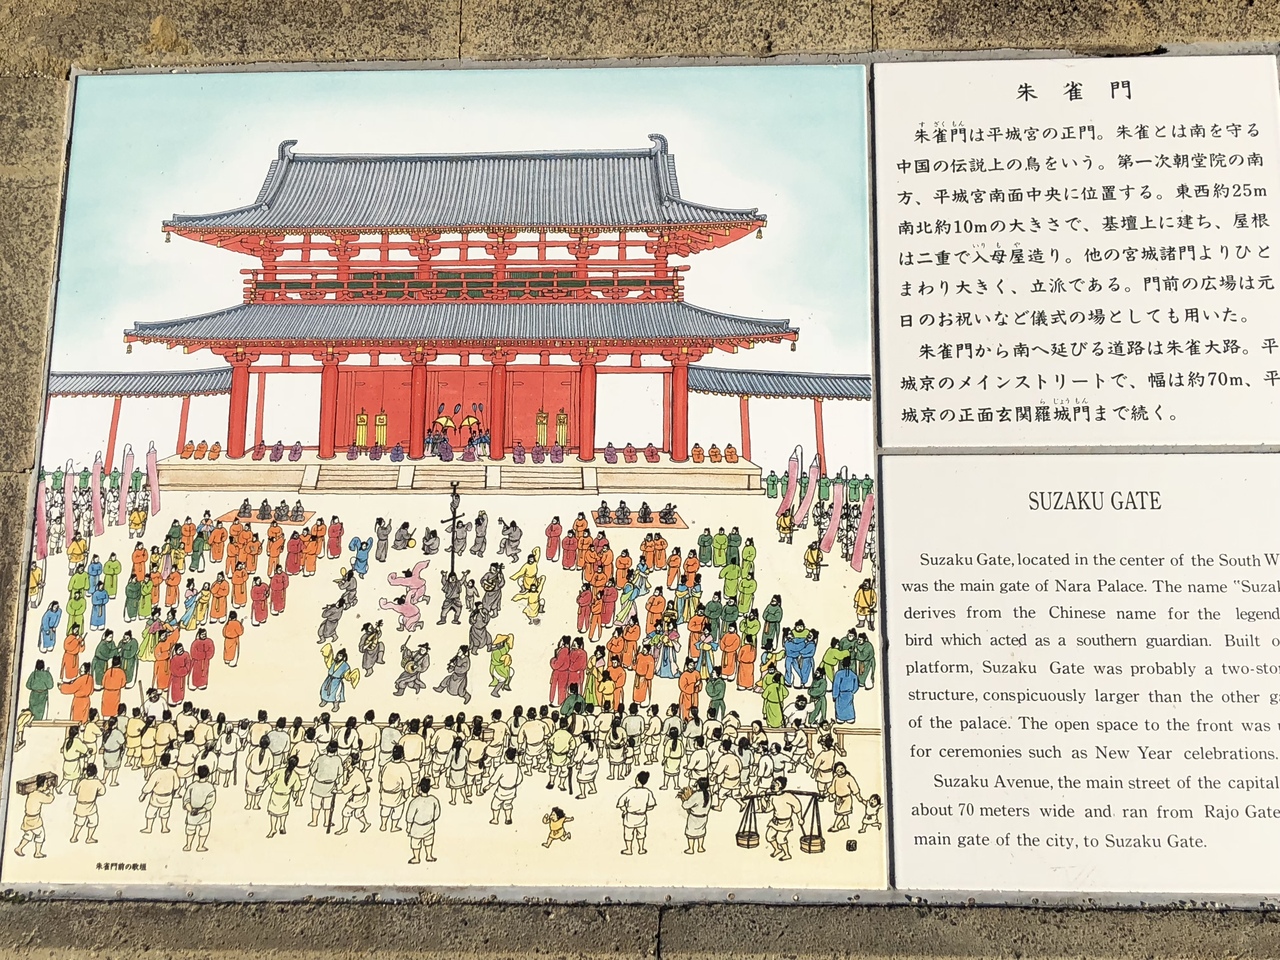 朱雀門
朱雀門は平城宮の正門。朱雀とは南を守る
中国の伝説上の鳥をいう。第一次朝堂院の南
方、平城宮南面中央に位置する。東西約25m
南北約10mの大きさで、基壇上に建ち、屋根
は二重で入母屋造り。他の宮城諸門よりひと
まわり大きく、立派である。門前の広場は元
日のお祝いなど儀式の場としても用いた。
朱雀門から南へ延びる道路は朱雀大路。平
城京のメインストリートで、幅は約70m、平
城京の正面玄関羅城門まで続く。
SUZAKU GATE
Suzaku Gate, located in the center of the South
was the main gate of Nara Palace. The name "Suza
derives from the Chinese name for the legend
bird which acted as a southern guardian. Built
platform, Suzaku Gate was probably a two-sto
structure, conspicuously larger than the other
of the palace. The open space to the front was
for ceremonies such as New Year celebrations.
Suzaku Avenue, the main street of the capital
about 70 meters wide and ran from Rajo Gate
main gate of the city, to Suzaku Gate.
朱雀門前の歌垣